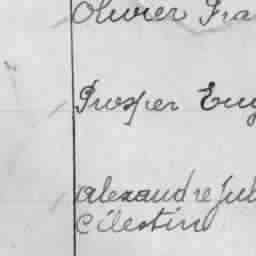 Olivier Fra
Prosper Eug
alexandre Jul
Célestin